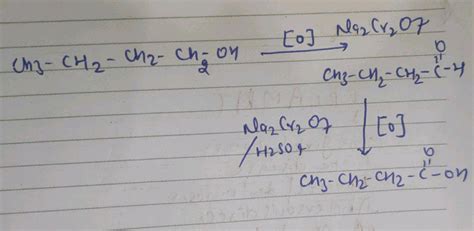 CH3-CH2-CH2-CH2-OH [O] Na2Cr2O7
O
CH3-CH2-CH2-C-H
Na2Cr2O7 [O]
/H2SO4
O
CH3-CH2-CH2-C-OH